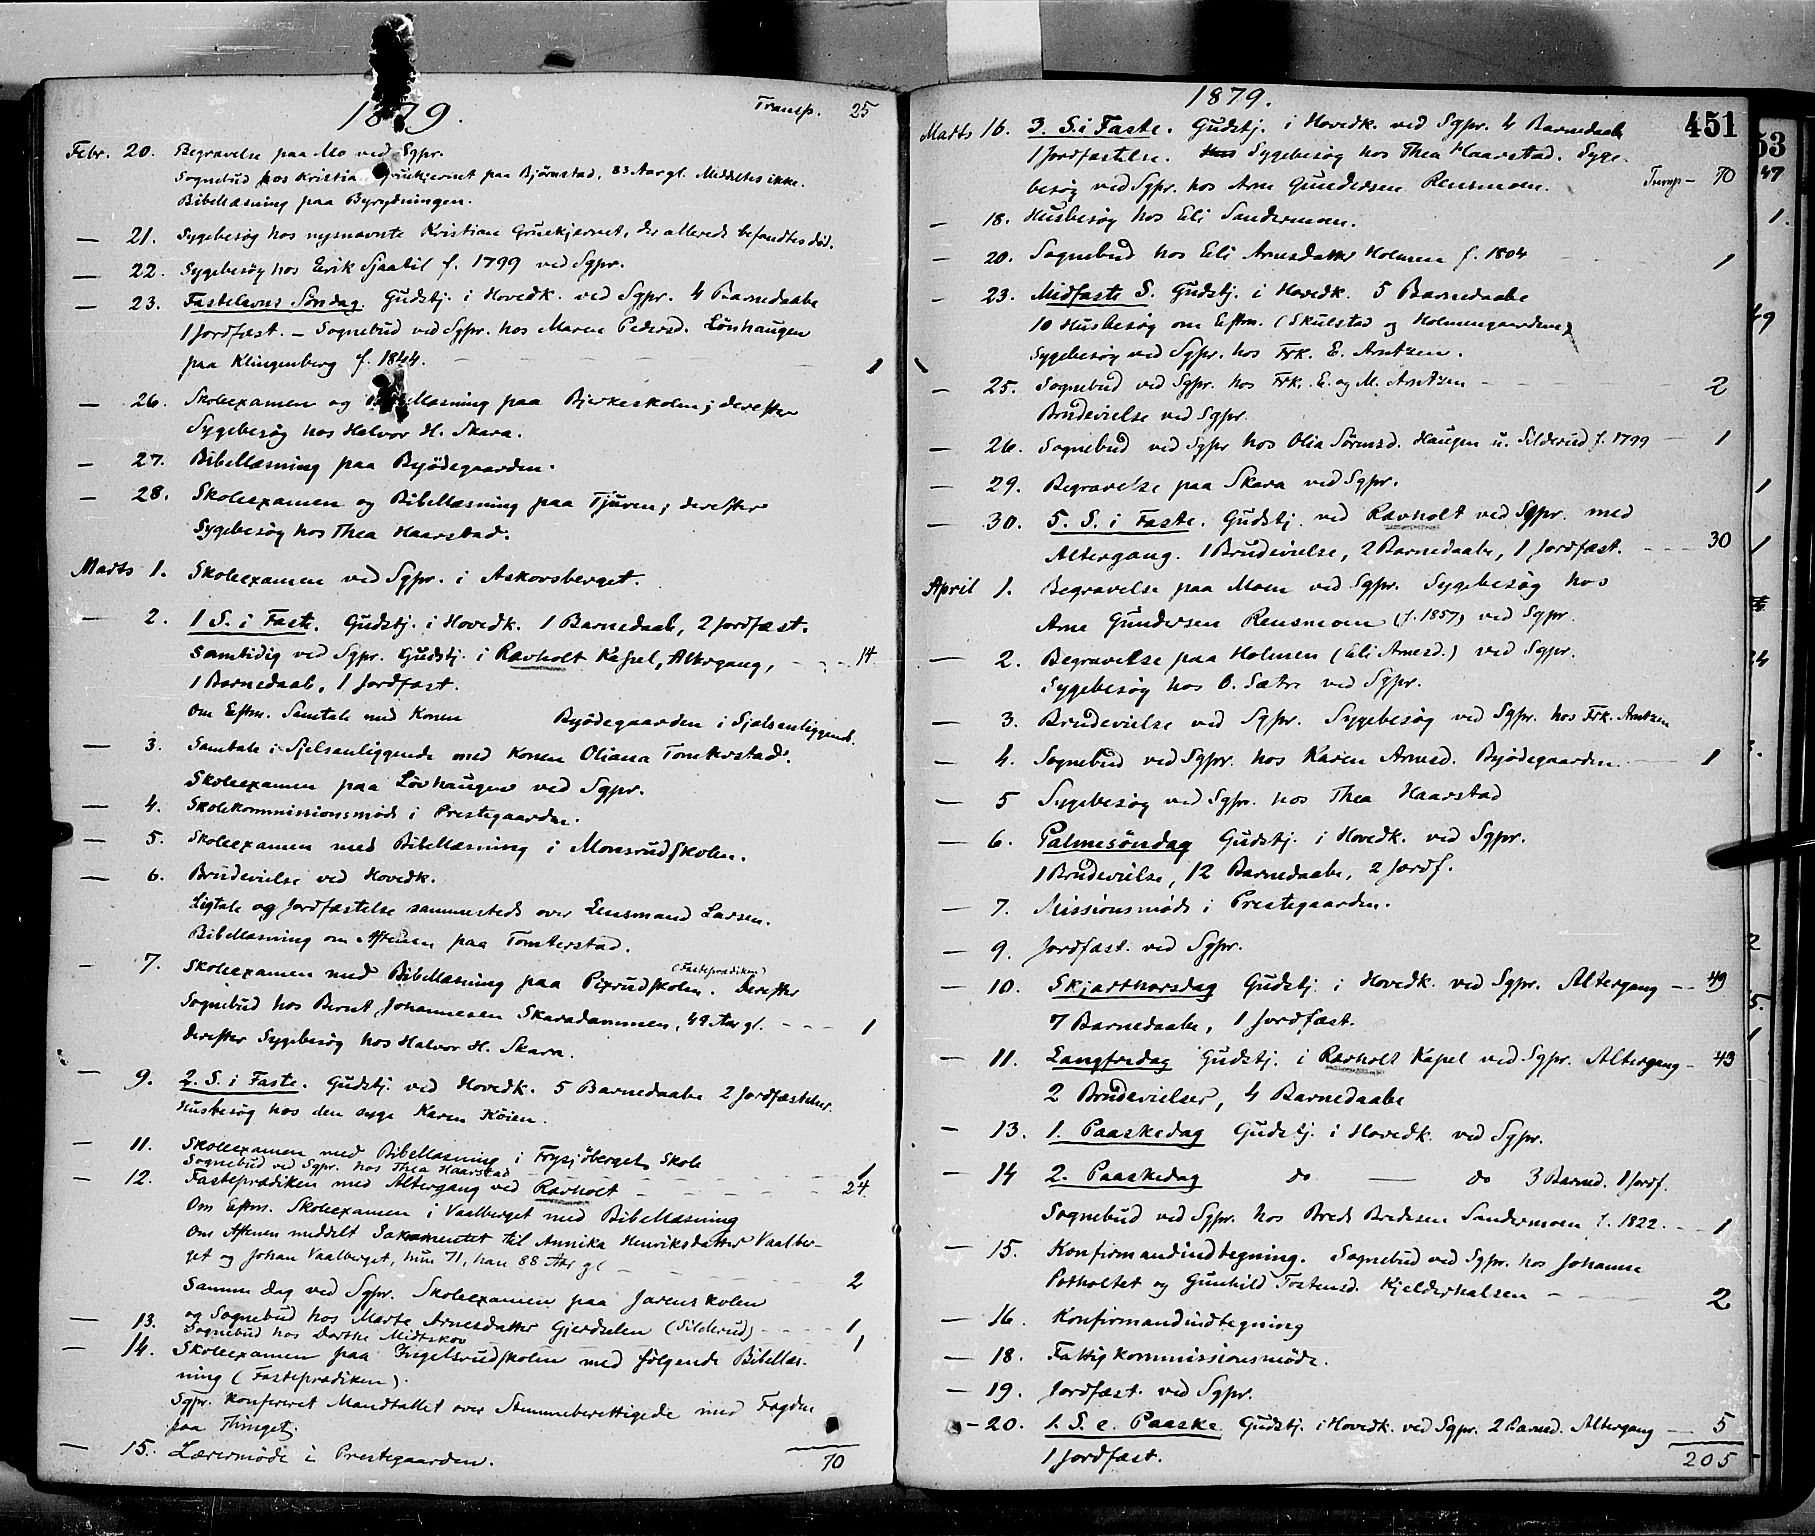 1879.
Transp. 25
Febr. 20. Begravelse paa Mo ved Sgpr.
Sognebud hos Kristian Gruekjernet paa Bjørnstad, 83 Aar gl. Meddeltes ikke.
Bibellæsning paa Byrydningen.
— 21. Sygebesøg hos nysnævnte Kristian Gruekjernet, der allerede befandtes død.
— 22. Sygebesøg hos Erik Sjaatil f. 1799 ved Sgpr.
— 23. Fastelavns Søndag. Gudstj. i Hovedk. ved Sgpr. 4 Barnedaabe
1 Jordfæst. – Sognebud ved Sgpr. hos Maren Pedersd. Lönhaugen
paa Klingenberg f. 1844. — — — 1
— 26. Skoleexamen og Bibellæsning paa Bjerkeskolen; derefter
Sygebesøg hos Halvor H. Skara.
— 27. Bibellæsning paa Byödegaarden.
— 28. Skoleexamen og Bibellæsning paa Tjuren; derefter
Sygebesøg hos Thea Haarstad.
Marts 1. Skoleexamen ved Sgpr. i Askorsberget.
— 2. 1 S. i Faste. Gudstj. i Hovedk. 1 Barnedaab, 2 Jordfæst.
Samtidig ved Sgpr. Gudstj. i Ravholt Kapel, Altergang, — — 14
1 Barnedaab, 1 Jordfæst.
Om Eftm. Samtale med Konen Byödegaarden i Sjælsanliggende.
— 3. Samtale i Sjelsanliggende med Konen Oliana Tomterstad.
Skoleexamen paa Lövhaugen ved Sgpr.
— 4. Skolekommissionsmøde i Prestegaarden.
— 5. Skoleexamen med Bibellæsning i Monsrudskolen.
— 6. Brudevielse ved Hovedk.
Ligtale og Jordfæstelse sammesteds over Lensmand Larsen.
Bibellæsning om Aftenen paa Tomterstad.
(Fasteprædiken)
— 7. Skoleexamen med Bibellæsning paa Pixrudskolen. Derefter
Sognebud hos Bernt Johannesen Skaradammen, 49 Aar gl. — — — 1
Derefter Sygebesøg hos Halvor H. Skara.
— 9. 2. S. i Faste. Gudstj. ved Hovedk. 5 Barnedaabe 2 Jordfæstelser.
Husbesøg hos den syge Karen Köien.
— 11. Skoleexamen med Bibellæsning i Frysjöbergets Skole
Sognebud ved Sgpr. hos Thea Haarstad — — — 1
— 12. Fasteprædiken med Altergang ved Ravholt — — — 24
Om Eftm. Skoleexamen i Vaalberget med Bibellæsning
Om Aftenen meddelt Sakramentet til Annika Henriksdatter Vaalber-
get og Johan Vaalberget, hun 71, han 88 Aar gl — — — 2
Samme Dag ved Sgpr. Skoleexamen paa Jarenskolen
og Sognebud hos Marte Arnesdatter Gjerdselen (Silderud) — — — 1
— 13. Sognebud hos Dorthe Midtskov 1
— 14. Skoleexamen paa Ingelsrudskolen med følgende Bibellæs-
ning (Fasteprædiken).
Sgpr. konfereret Mandtallet over Stemmeberettigede med Fogden
paa Thinget.
— 15. Lærermöde i Prestegaarden.
70
1879.
451
Marts 16. 3. S. i Faste. Gudstj. i Hovedk. ved Sgpr. 4 Barnedaab
1 Jordfæstelse. Sygebesøg hos Thea Haarstad. Syge-
besøg ved Sgpr. hos Arne Gundersen Rensmoen. Transp – 70
— 18. Husbesøg hos Eli Sandermoen.
— 20. Sognebud hos Eli Arnesdatter Holmen f. 1804 — — 1
— 23. Midfaste S. Gudstj. i Hovedk. 5 Barnedaabe
10 Husbesøg om Eftm. (Skulstad og Holmengaardene)
Sygebesøg ved Sgpr. hos Frk. E. Arntzen.
— 25. Sognebud ved Sgpr. hos Frk. E. og M. Arntzen — — — 2
Brudevielse ved Sgpr.
— 26. Sognebud ved Sgpr hos Olia Sörensd. Haugen u. Silderud f. 1799 — 1
— 29. Begravelse paa Skara ved Sgpr.
— 30. 5. S. i Faste. Gudstj. ved Ravholt ved Sgpr. med
Altergang. 1 Brudevielse, 2 Barnedaabe, 1 Jordfæst. — — — 30
April 1. Begravelse paa Moen ved Sgpr. Sygebesøg hos
Arne Gundersen Rensmoen (f. 1857) ved Sgpr.
— 2. Begravelse paa Holmen (Eli Arnesd.) ved Sgpr.
Sygebesøg hos O. Sætre ved Sgpr.
— 3. Brudevielse ved Sgpr. Sygebesøg ved Sgpr. hos Frk. Arntzen
— 4. Sognebud ved Sgpr. hos Karen Arnesd. Byödegaarden — — 1
— 5 Sygebesøg ved Sgpr. hos Thea Haarstad
— 6. Palmesöndag Gudstj. i Hovedk. ved Sgpr.
1 Brudevielse, 12 Barnedaabe, 2 Jordf.
— 7. Missionsmøde i Prestegaarden.
— 9. Jordfæst. ved Sgpr.
— 10. Skjærthorsdag Gudstj. i Hovedk. ved Sgpr. Altergang — — 49
7 Barnedaabe, 1 Jordfæst.
— 11. Langfredag Gudstj. i Ravholt Kapel ved Sgpr. Altergang — 43
2 Brudevielser, 4 Barnedaabe
— 13. 1. Paaskedag Gudstj. i Hovedk. ved Sgpr.
— 14 2. Paaskedag do — do 3 Barned. 1 Jordf.
Sognebud ved Sgpr. hos Brede Bredesen Sandermoen f. 1822. — — 1
— 15. Konfirmandindtegning. Sognebud ved Sgpr. hos Johanne
Potholtet og Gunhild Tostensd. Kjelderhalsen — — — 2
— 16. Konfirmandindtegning
— 18. Fattigkommissionsmøde.
— 19. Jordfæst. ved Sgpr.
— 20. 1. S. e. Paaske Gudstj. i Hovedk. ved Sgpr. 2 Barned. Altergang — 5
1 Jordfæst. 205
53